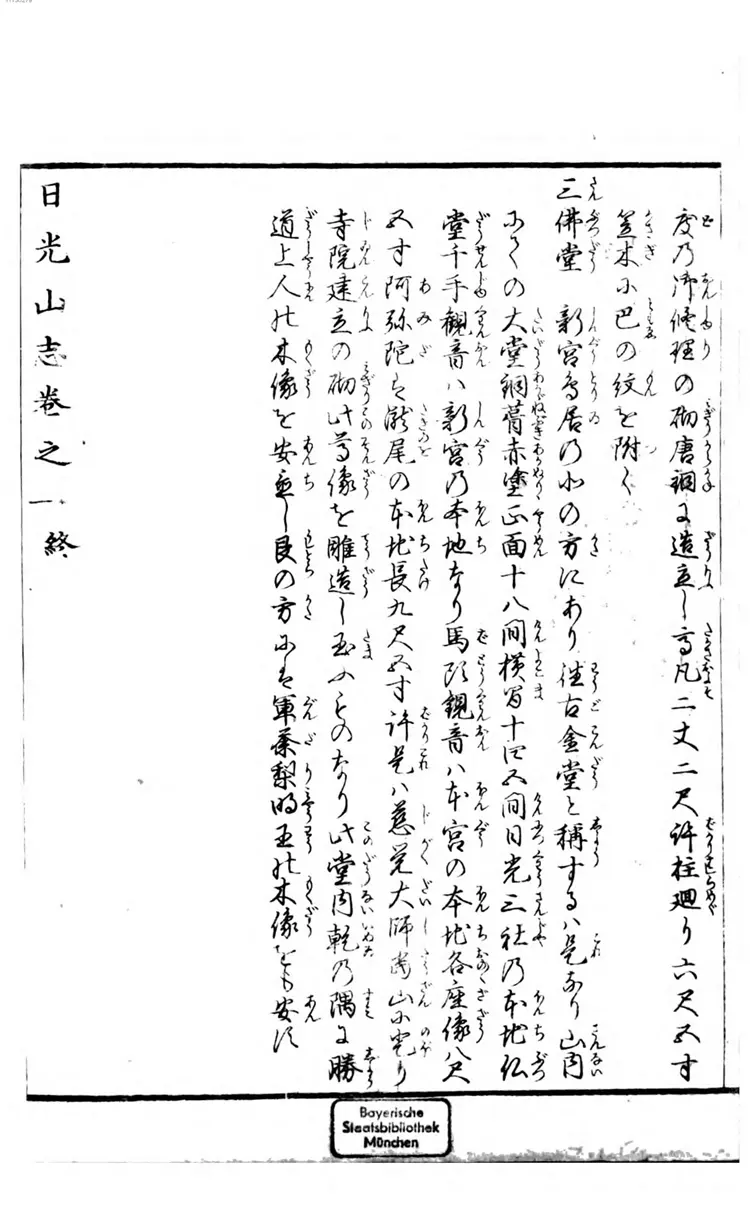 度乃御修理の砌唐銅に造立し高凡二丈二尺許柱廻り六尺五寸
笠木に巴の紋を附く
三佛堂 新宮鳥居乃北の方にあり往古金堂と稱するハ是なり山内
の大堂銅葺赤塗正面十八間横間十四五間日光三社乃本地仏
堂千手観音ハ新宮乃本地なり馬頭観音ハ本宮の本地各座像八尺
五寸阿弥陀は瀧尾の本地長九尺五寸許是ハ慈覚大師當山に登り
寺院建立の砌此尊像を雕造し玉ふものなり此堂内乾乃隅に勝
道上人の木像を安置し艮の方には軍荼梨明王の木像をも安す
日光山志巻之一終
Bayerische
Staatsbibliothek
München